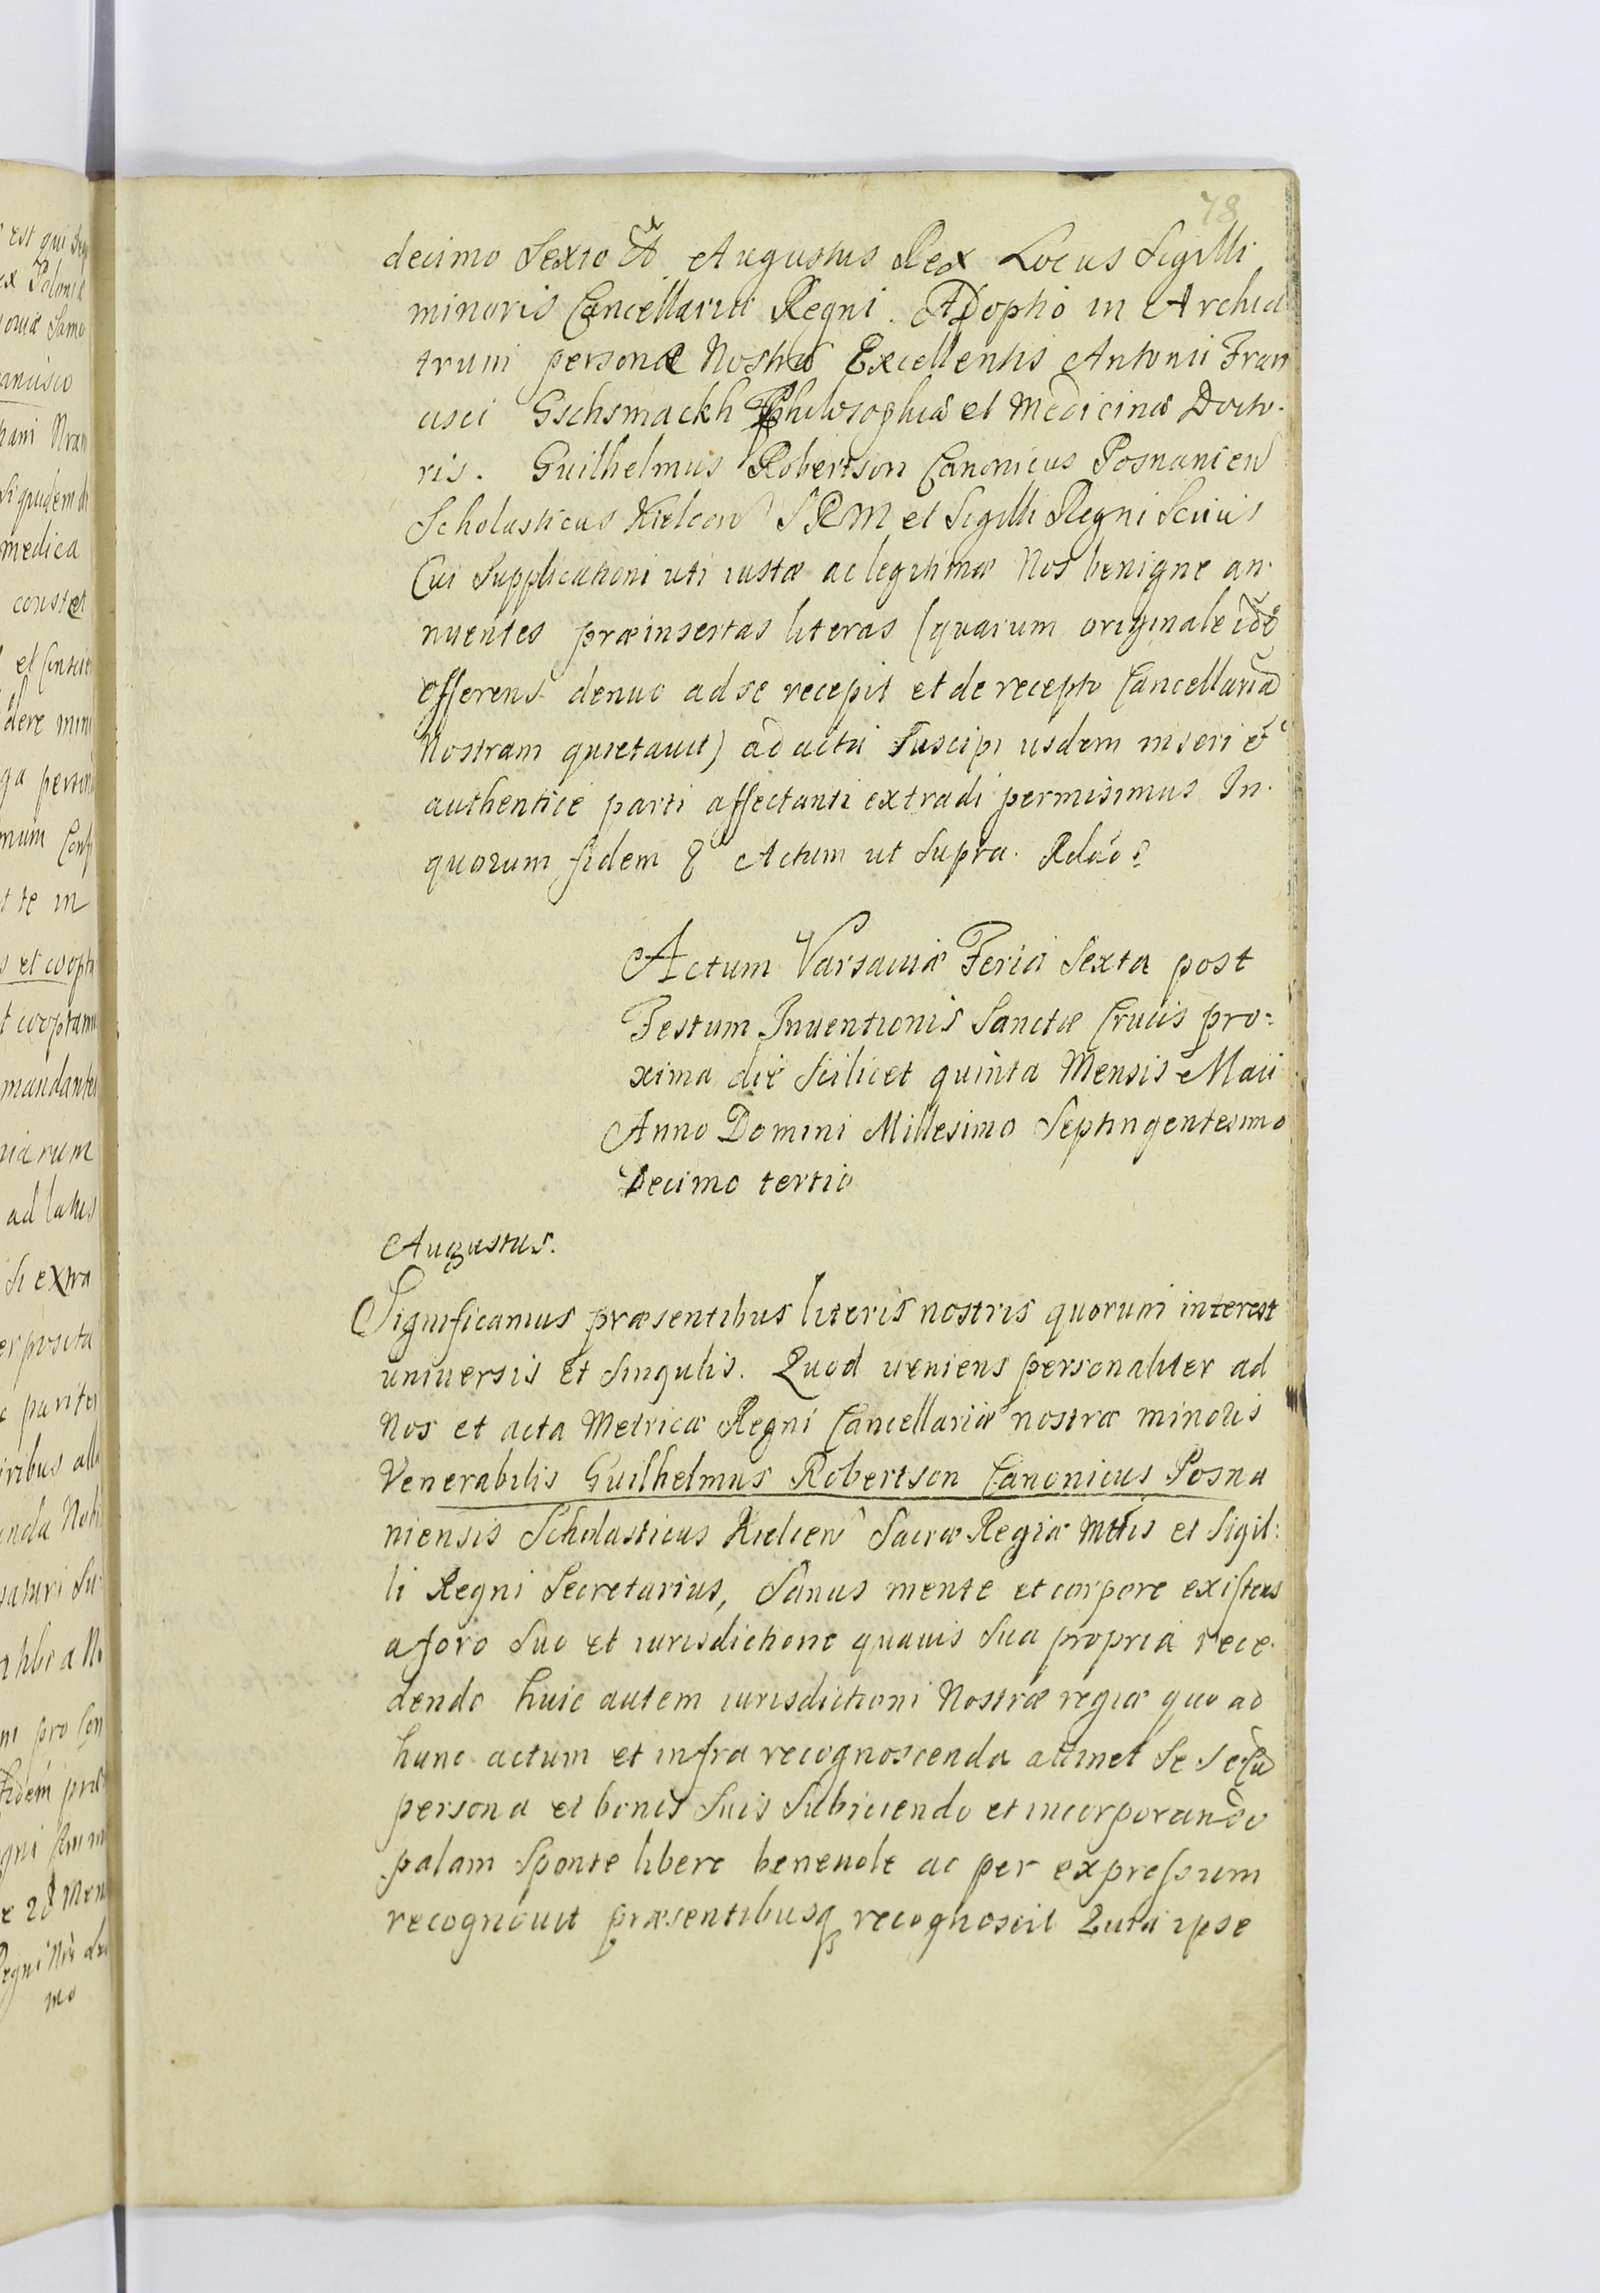 78
decimo Sexto Augustus Rex Locus Sigilli
minoris Cancellariæ Regni. ADoptio in Archia
trum personæ Nostræ Excellentis Antonii Fran
cisci Gschsmackh Philosophiæ et Medicinæ Docto-
ris. Guilhelmus Robertson Canonicus Posnanien
Scholasticus Kielcen SRM et Sigilli Regni Scrius
Cui Supplicationi uti iustæ ac legitimæ Nos benigne an-
nuentes præinsertas literas (quarum originale idē
offerens denuo ad se recepit et de recepto Cancellariā
Nostram quietauit) ad acta Suscipi iisdem inseri et
authentice parti affectanti extradi permisimus In-
quorum fidem Actum ut Supra. Relāo
Actum Varsauiæ Feria Sexta post
Festum Inuentionis Sanctæ Crucis pro=
xima die Scilicet quinta Mensis Maii
Anno Domini Millesimo Septingentesimo
Decimo tertio
Augustus.
Significamus præsentibus literis nostris quorum interest
uniuersis et Singulis. Quod ueniens personaliter ad
Nos et acta Metricæ Regni Cancellariæ nostræ minoris
Venerabilis Guilhelmus Robertson Canonicus Posna
niensis Scholasticus Kielcen Sacræ Regiæ Mttis et Sigil:
li Regni Secretarius, Sanus mente et corpore existens
a foro Suo et iurisdictione quauis Sua propria rece-
dendo huic autem iurisdictioni Nostræ regiæ quo ad
hunc actum et infra recognoscenda attinet Se
persona et bonis Suis Subiiciendo et incorporando
palam Sponte libere beneuole ac per expressum
recognouit præsentibusq recognoscit Quia ipse